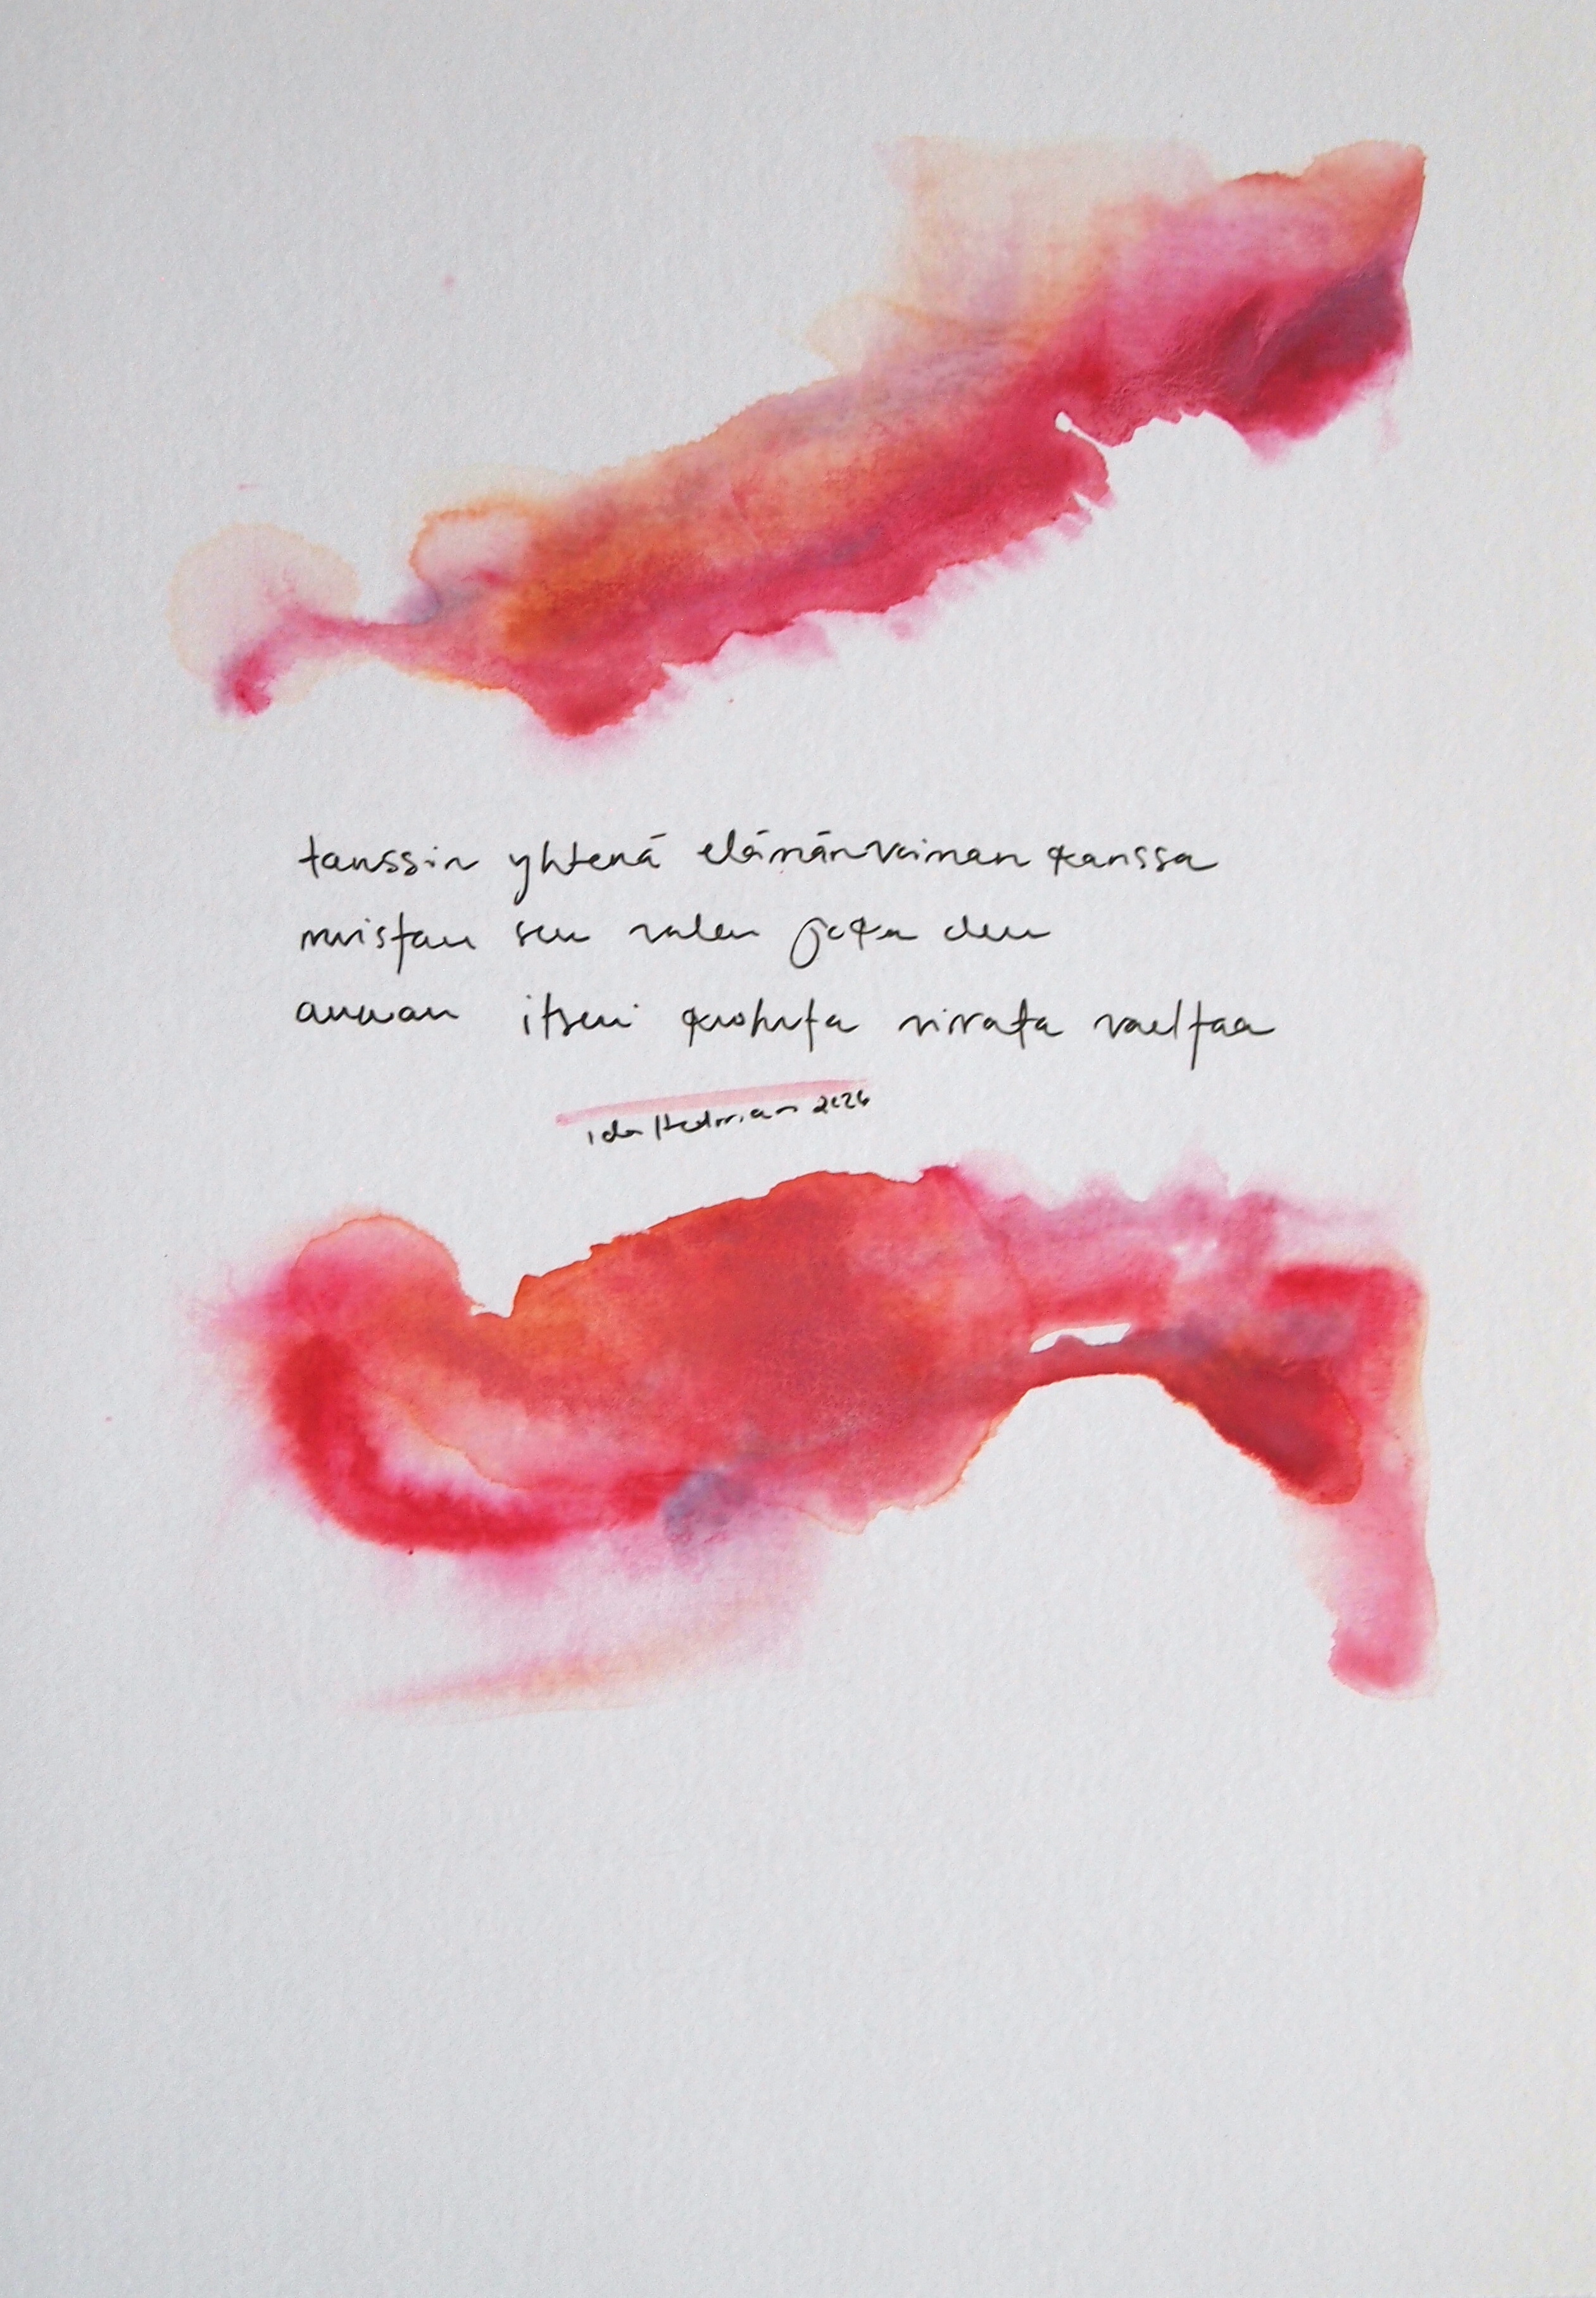 tanssin yhtenä elämänvoiman kanssa
muistan sen valon joka olen
annan itseni kuohuta virrata vaeltaa
Ida Hedman 2026